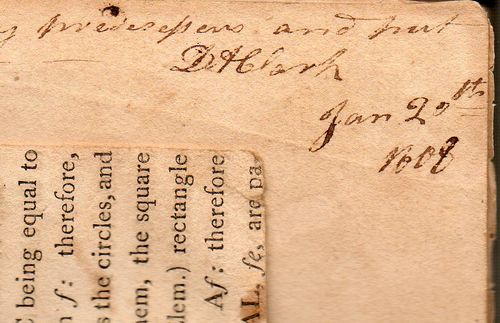 predesessers and put
D H Clark
Jan 20th
1608
G being equal to
n f: therefore,
s the circles, and
em, the square
lem.) rectangle
Af: therefore
AL, fe, are pa